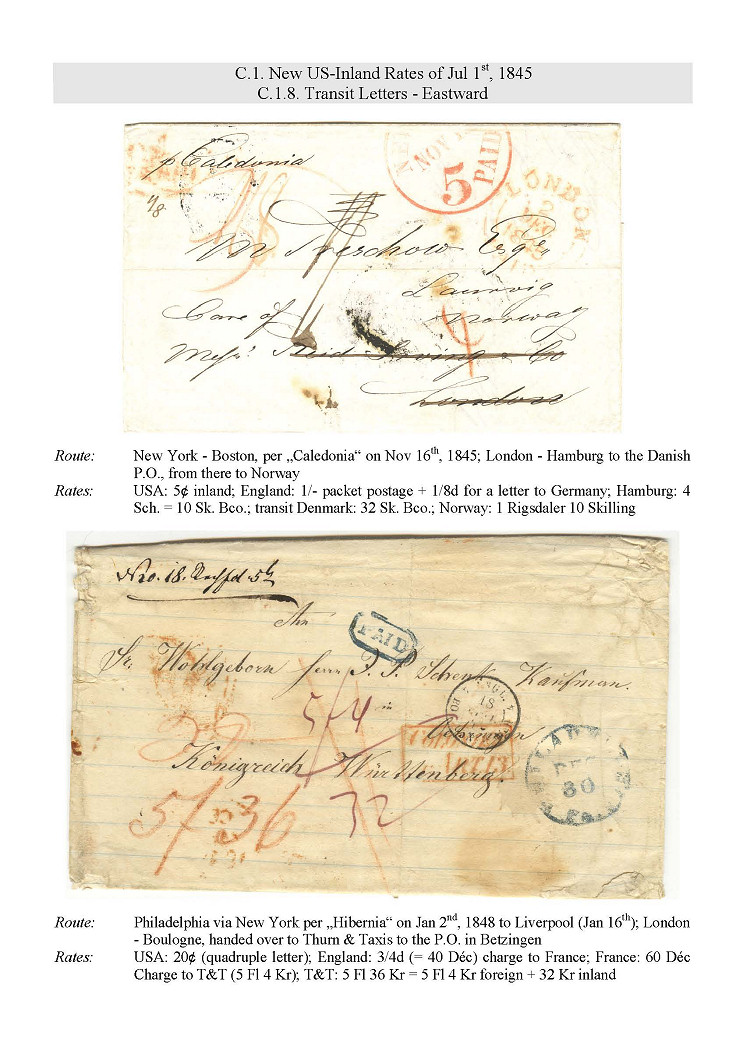 C.1. New US-Inland Rates of Jul 1st, 1845
C.1.8. Transit Letters - Eastward
p Caledonia
NOV
5
PAID
LONDON
1/8
Esqre
Laurvig
Norway
Care of
Messrs Reid Irving & Co
London
Route: New York - Boston, per „Caledonia“ on Nov 16th, 1845; London - Hamburg to the Danish
P.O., from there to Norway
Rates: USA: 5¢ inland; England: 1/- packet postage + 1/8d for a letter to Germany; Hamburg: 4
Sch. = 10 Sk. Bco.; transit Denmark: 32 Sk. Bco.; Norway: 1 Rigsdaler 10 Skilling
Nro. 18.
An
PAID
Sr. Wohlgeborn Herrn J. P. Schenk Kaufman.
5/4
in
COLONIES
ART.13
Königreich Württenberg.
DEC
30
Pa.
5/36
32
Route: Philadelphia via New York per „Hibernia“ on Jan 2nd, 1848 to Liverpool (Jan 16th); London
- Boulogne, handed over to Thurn & Taxis to the P.O. in Betzingen
Rates: USA: 20¢ (quadruple letter); England: 3/4d (= 40 Déc) charge to France; France: 60 Déc
Charge to T&T (5 Fl 4 Kr); T&T: 5 Fl 36 Kr = 5 Fl 4 Kr foreign + 32 Kr inland